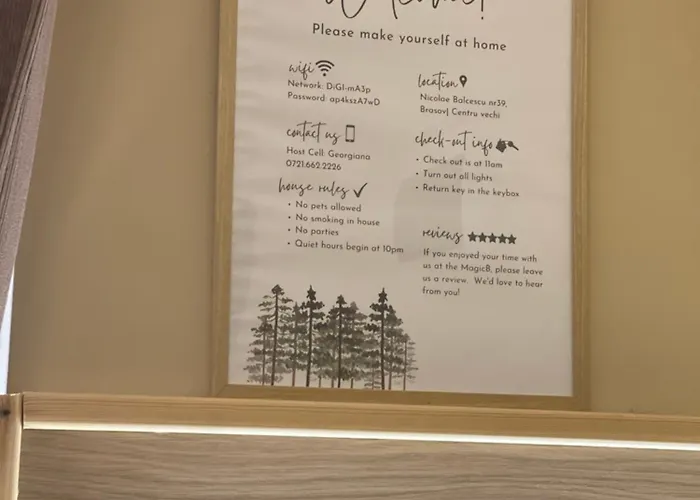 Welcome!
Please make yourself at home
wifi
Network: DIGI-mA3p
Password: ap4kszA7wD
contact us
Host Cell: Georgiana
0721.662.2226
house rules
• No pets allowed
• No smoking in house
• No parties
• Quiet hours begin at 10pm
location
Nicolae Balcescu nr39,
Brasov| Centru vechi
check-out info
• Check out is at 11am
• Turn out all lights
• Return key in the keybox
reviews
If you enjoyed your time with
us at the Magic8, please leave
us a review. We'd love to hear
from you!